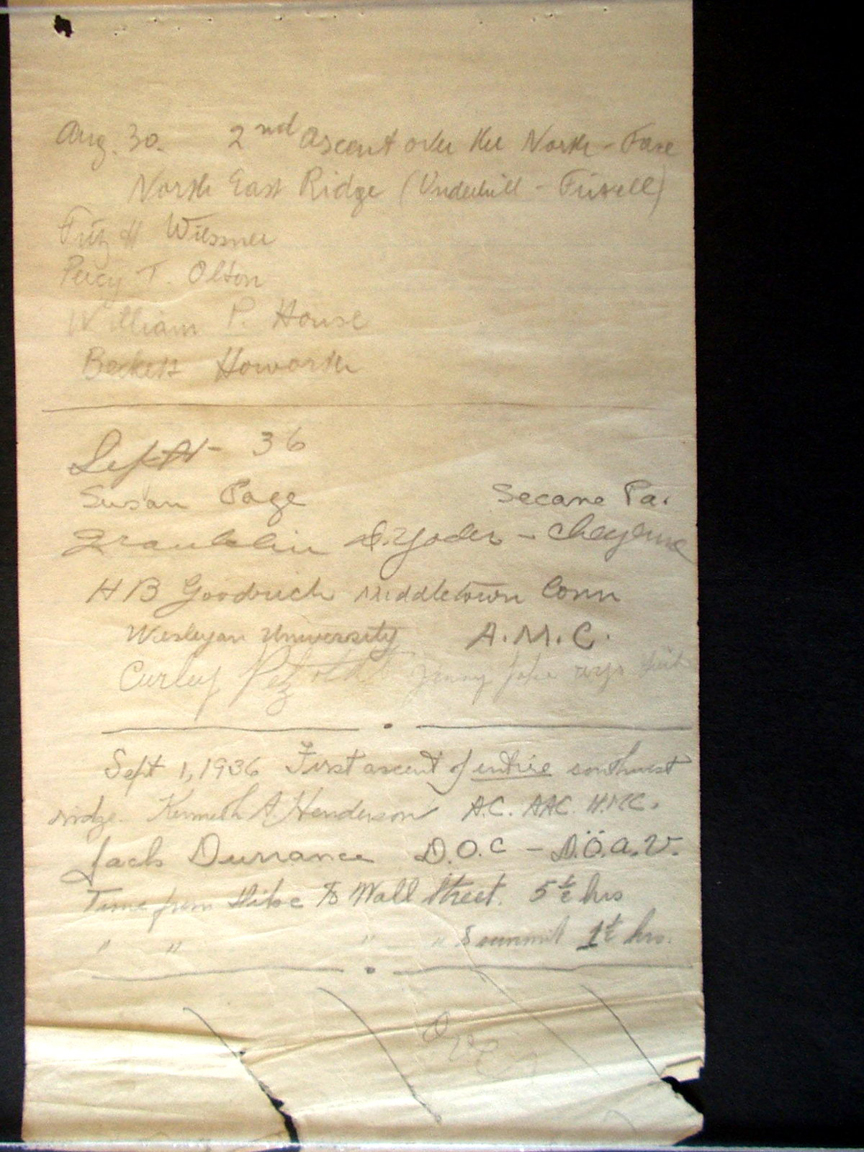 Aug. 30. 2nd Ascent over the North - Face
North East Ridge (Underhill - Frixell)
Fritz H Wiessner
Percy T. Olton
William P. House
Beckett Howorth
Sept 1 - 36
Susan Page Secane Pa.
Franklin D. Yoder - Cheyenne
H B Goodrich Middletown Conn
Wesleyan University A.M.C.
Curley Petzoldt Jenny Lake Wyo
Sept 1, 1936 First ascent of entire southwest
ridge. Kenneth A Henderson A.C. AAC. H.M.C.
Jack Durrance D.O.C - D.Ö.A.V.
Time from to Wall Street. 5 1/2 hrs
" " " " summit 1 1/2 hrs.
Over